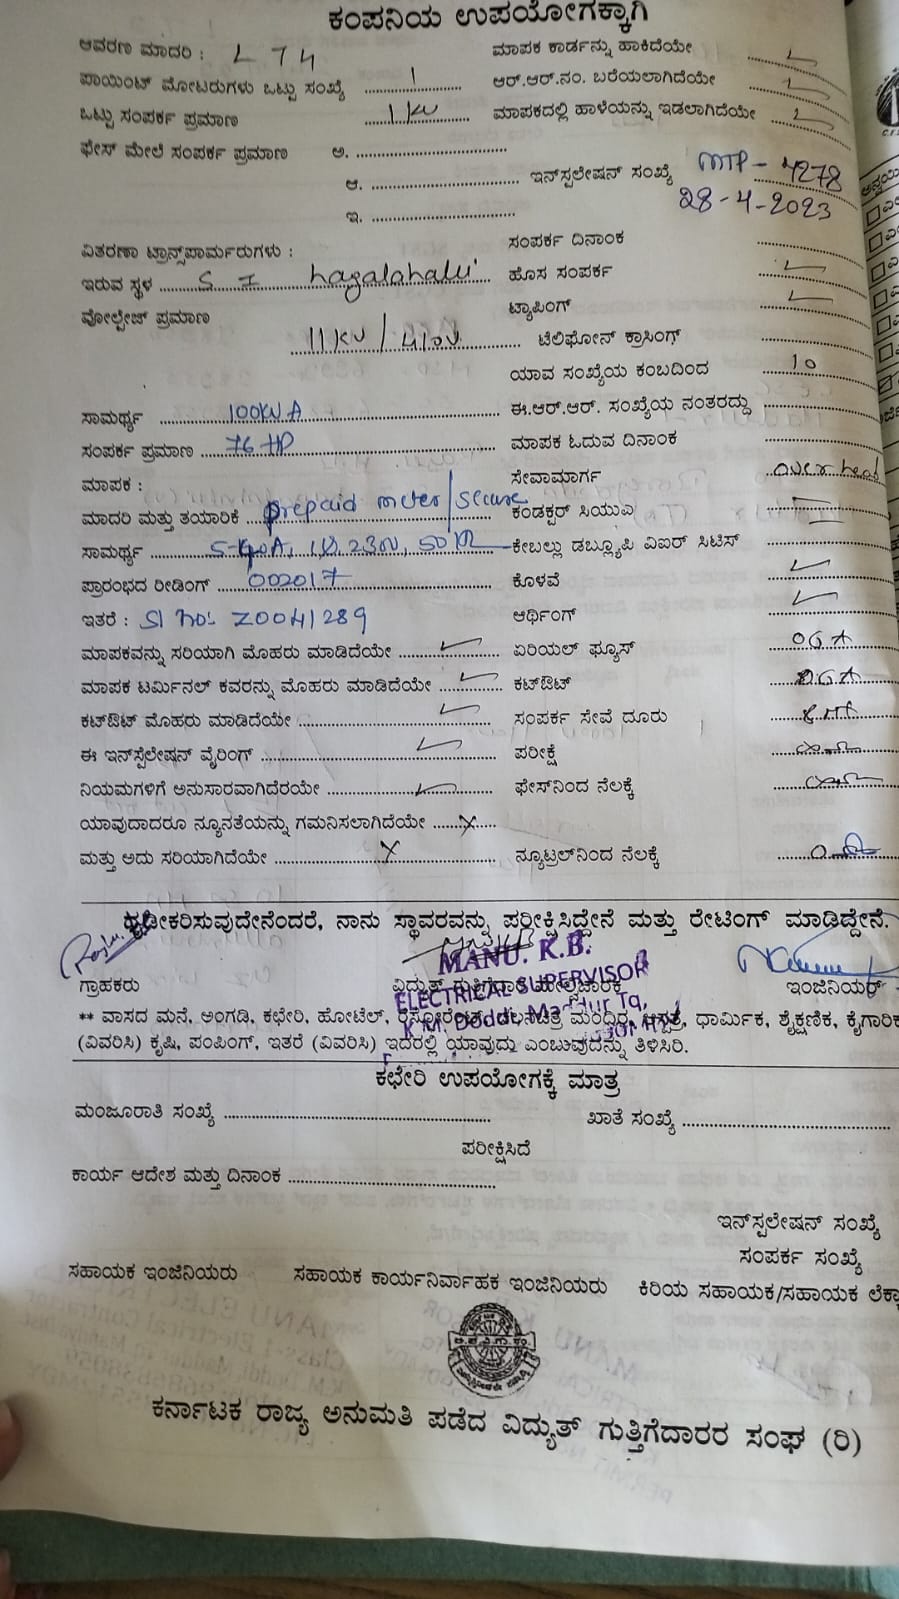 ಕಂಪನಿಯ ಉಪಯೋಗಕ್ಕಾಗಿ
ಆವರಣ ಮಾದರಿ : L T 4 ಮಾಪಕ ಕಾರ್ಡನ್ನು ಹಾಕಿದೆಯೇ
ಪಾಯಿಂಟ್ ಮೋಟರುಗಳು ಒಟ್ಟು ಸಂಖ್ಯೆ 1 ಆರ್.ಆರ್.ನಂ. ಬರೆಯಲಾಗಿದೆಯೇ
ಒಟ್ಟು ಸಂಪರ್ಕ ಪ್ರಮಾಣ 1 KW ಮಾಪಕದಲ್ಲಿ ಹಾಳೆಯನ್ನು ಇಡಲಾಗಿದೆಯೇ
ಫೇಸ್ ಮೇಲೆ ಸಂಪರ್ಕ ಪ್ರಮಾಣ ಅ.
ಆ. ಇನ್‌ಸ್ಪಲೇಷನ್ ಸಂಖ್ಯೆ MTP - 4278
ಇ. 28-4-2023
ಸಂಪರ್ಕ ದಿನಾಂಕ
ವಿತರಣಾ ಟ್ರಾನ್ಸ್‌ಪಾರ್ಮರುಗಳು :
ಇರುವ ಸ್ಥಳ ಹೊಸ ಸಂಪರ್ಕ
ಟ್ಯಾಪಿಂಗ್
ವೋಲ್ಟೇಜ್ ಪ್ರಮಾಣ 11KV / ಟೆಲಿಫೋನ್ ಕ್ರಾಸಿಂಗ್
ಯಾವ ಸಂಖ್ಯೆಯ ಕಂಬದಿಂದ 10
ಸಾಮರ್ಥ್ಯ 100KVA ಈ.ಆರ್.ಆರ್. ಸಂಖ್ಯೆಯ ನಂತರದ್ದು
ಸಂಪರ್ಕ ಪ್ರಮಾಣ 76 HP ಮಾಪಕ ಓದುವ ದಿನಾಂಕ
ಮಾಪಕ : ಸೇವಾಮಾರ್ಗ
ಮಾದರಿ ಮತ್ತು ತಯಾರಿಕೆ prepaid meter/secure ಕಂಡಕ್ಟರ್ ಸಿಯುಎ
ಸಾಮರ್ಥ್ಯ ಕೇಬಲ್ಲು ಡಬ್ಲ್ಯೂಪಿ ವಿಐರ್ ಸಿಟಿಸ್
ಪ್ರಾರಂಭದ ರೀಡಿಂಗ್ 002017 ಕೊಳವೆ
ಇತರೆ : Sl no: Z0041289 ಆರ್ಥಿಂಗ್
ಮಾಪಕವನ್ನು ಸರಿಯಾಗಿ ಮೊಹರು ಮಾಡಿದೆಯೇ ಏರಿಯಲ್ ಫ್ಯೂಸ್
ಮಾಪಕ ಟರ್ಮಿನಲ್ ಕವರನ್ನು ಮೊಹರು ಮಾಡಿದೆಯೇ ಕಟ್‌ಔಟ್
ಕಟ್‌ಔಟ್ ಮೊಹರು ಮಾಡಿದೆಯೇ ಸಂಪರ್ಕ ಸೇವೆ ದೂರು
ಈ ಇನ್‌ಸ್ಪೆಲೇಷನ್ ವೈರಿಂಗ್ ಪರೀಕ್ಷೆ
ನಿಯಮಗಳಿಗೆ ಅನುಸಾರವಾಗಿದೆರಯೇ ಫೇಸ್‌ನಿಂದ ನೆಲಕ್ಕೆ
ಯಾವುದಾದರೂ ನ್ಯೂನತೆಯನ್ನು ಗಮನಿಸಲಾಗಿದೆಯೇ
ಮತ್ತು ಅದು ಸರಿಯಾಗಿದೆಯೇ ನ್ಯೂಟ್ರಲ್‌ನಿಂದ ನೆಲಕ್ಕೆ
ಧೃಡೀಕರಿಸುವುದೇನೆಂದರೆ, ನಾನು ಸ್ಥಾವರವನ್ನು ಪರೀಕ್ಷಿಸಿದ್ದೇನೆ ಮತ್ತು ರೇಟಿಂಗ್ ಮಾಡಿದ್ದೇನೆ.
MANU. K.B.
ಗ್ರಾಹಕರು ಇಂಜಿನಿಯರ್
ELECTRICAL SUPERVISOR
K M. Doddi, Maddur Tq,
** ವಾಸದ ಮನೆ, ಅಂಗಡಿ, ಕಛೇರಿ, ಹೋಟೆಲ್, ಧಾರ್ಮಿಕ, ಶೈಕ್ಷಣಿಕ, ಕೈಗಾರಿಕ
(ವಿವರಿಸಿ) ಕೃಷಿ, ಪಂಪಿಂಗ್, ಇತರೆ (ವಿವರಿಸಿ) ಇದರಲ್ಲಿ ಯಾವುದು ಎಂಬುವುದನ್ನು ತಿಳಿಸಿರಿ.
ಕಛೇರಿ ಉಪಯೋಗಕ್ಕೆ ಮಾತ್ರ
ಮಂಜೂರಾತಿ ಸಂಖ್ಯೆ ಖಾತೆ ಸಂಖ್ಯೆ
ಪರೀಕ್ಷಿಸಿದೆ
ಕಾರ್ಯ ಆದೇಶ ಮತ್ತು ದಿನಾಂಕ
ಇನ್‌ಸ್ಪಲೇಷನ್ ಸಂಖ್ಯೆ
ಸಂಪರ್ಕ ಸಂಖ್ಯೆ
ಸಹಾಯಕ ಇಂಜಿನಿಯರು ಸಹಾಯಕ ಕಾರ್ಯನಿರ್ವಾಹಕ ಇಂಜಿನಿಯರು ಕಿರಿಯ ಸಹಾಯಕ/ಸಹಾಯಕ ಲೆಕ್ಕ
ಕರ್ನಾಟಕ ರಾಜ್ಯ ಅನುಮತಿ ಪಡೆದ ವಿದ್ಯುತ್ ಗುತ್ತಿಗೆದಾರರ ಸಂಘ (ರಿ)